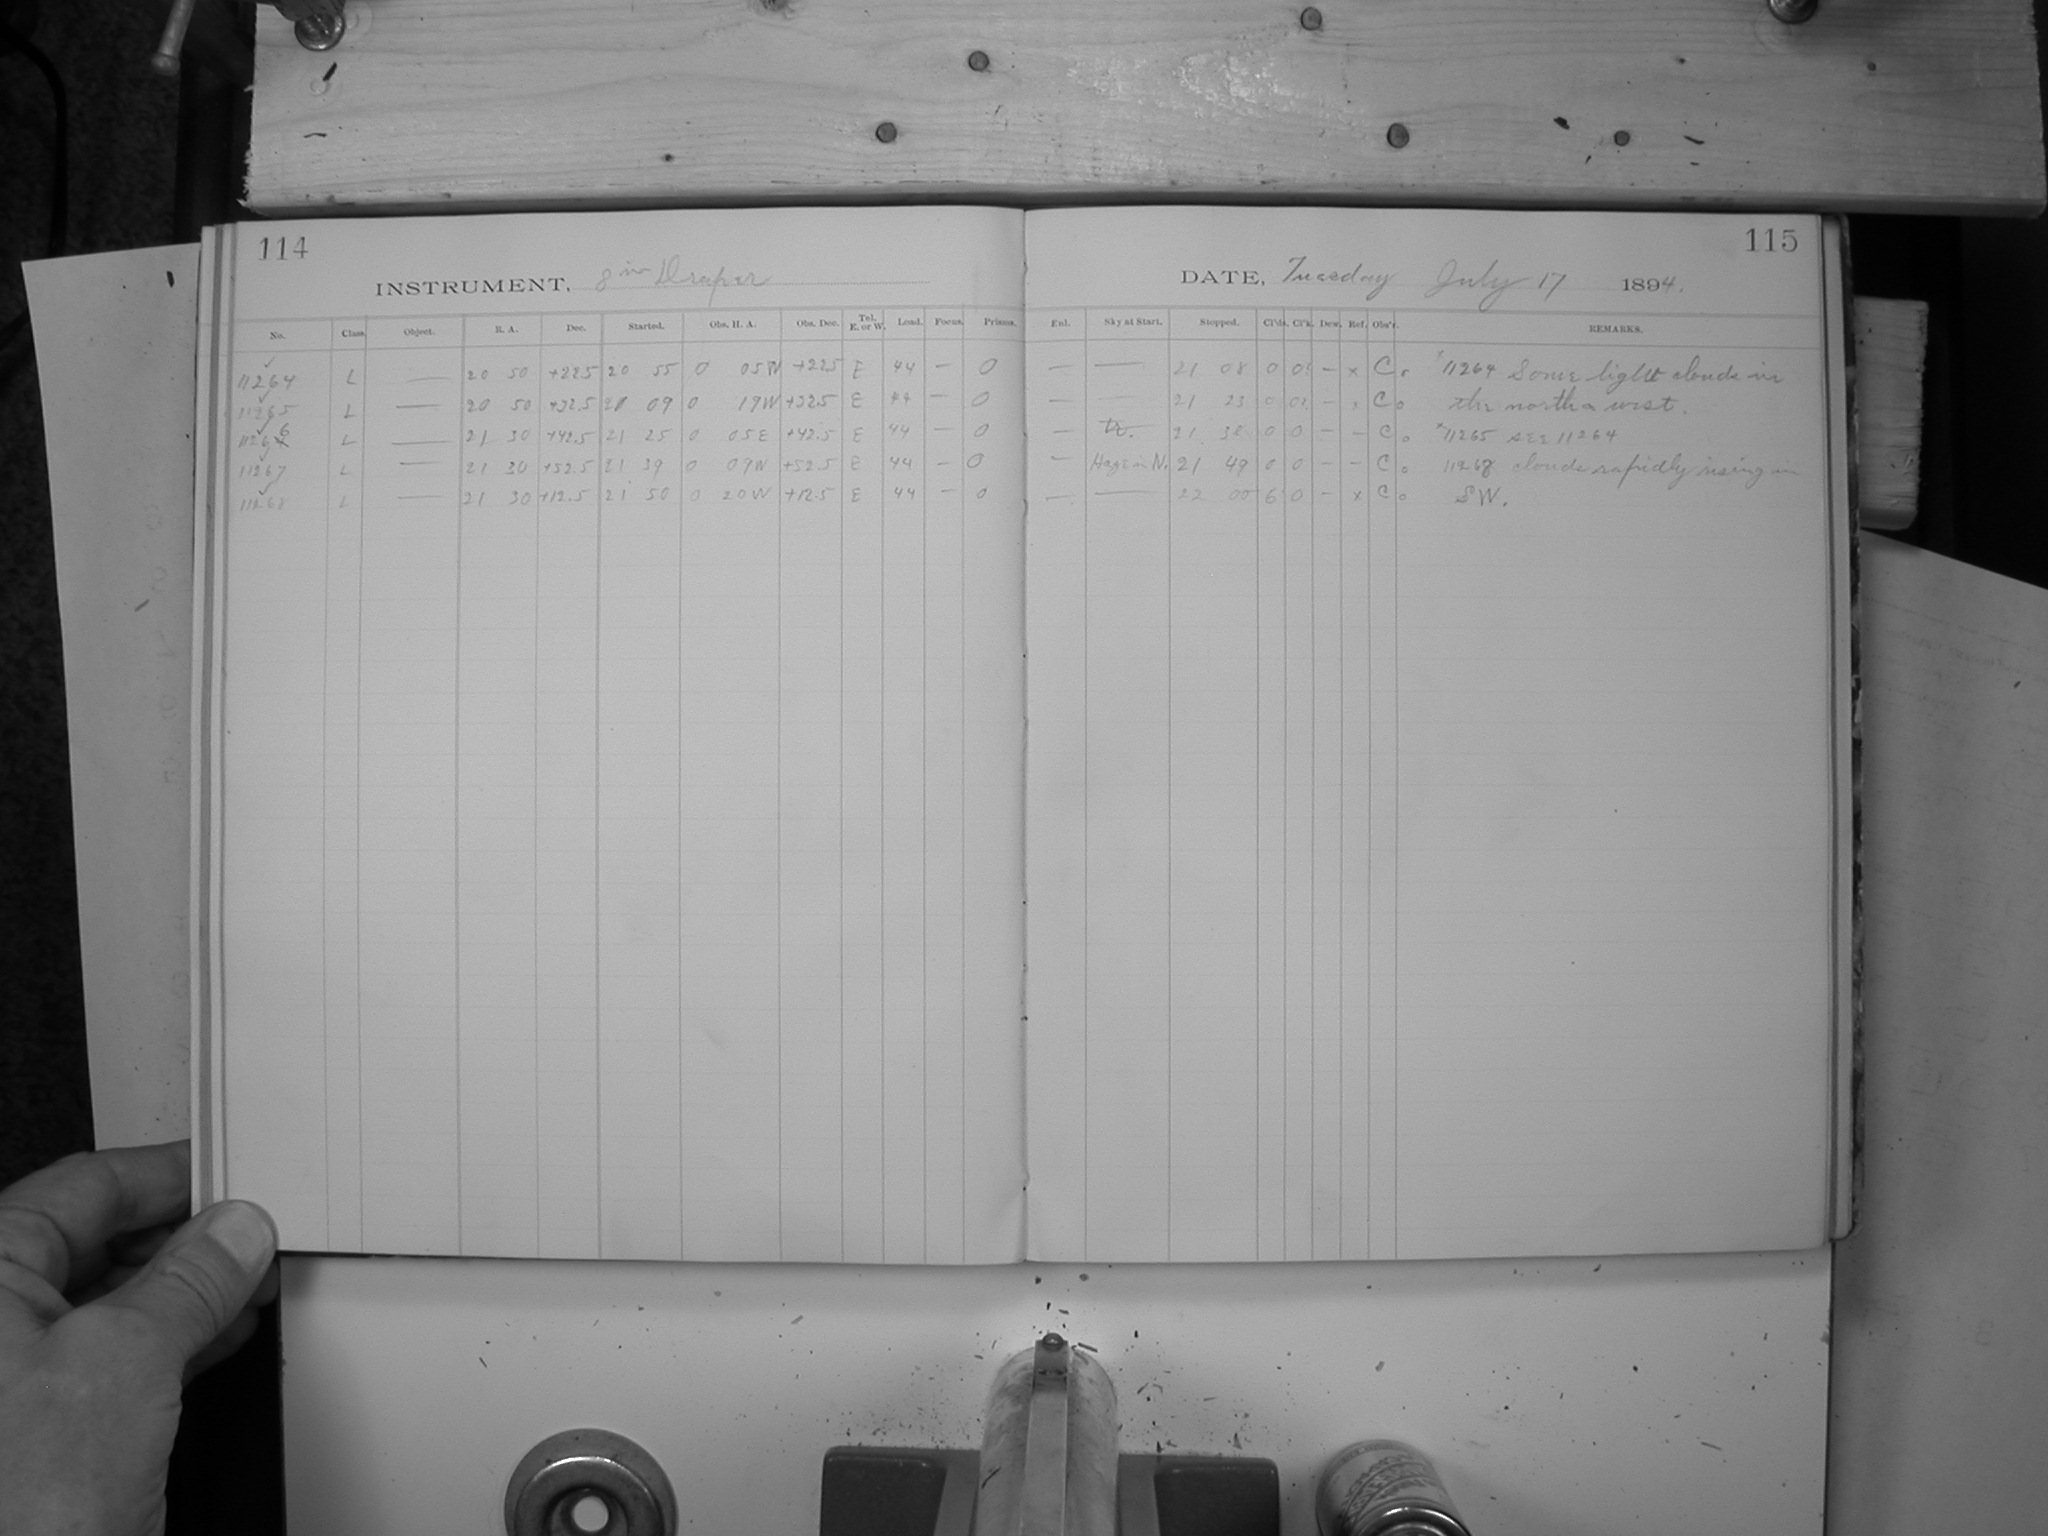 114
INSTRUMENT, 8 in Draper
No. Class. Object. R. A. Dec. Started. Obs. H. A. Obs. Dec. Tel. E. or W. Load. Focus. Prisms.
11264 L — 20 50 +22.5 20 55 0 05W +22.5 E 44 — 0
11265 L — 20 50 +32.5 21 09 0 19W +32.5 E 44 — 0
11266 L — 21 30 +42.5 21 25 0 05E +42.5 E 44 — 0
11267 L — 21 30 +52.5 21 39 0 09W +52.5 E 44 — 0
11268 L — 21 30 +12.5 21 50 0 20W +12.5 E 44 — 0
115
DATE, Tuesday July 17 1894.
Enl. Sky at Start. Stopped. Cl'ds. Cl'k. Dew. Ref. Obs'r. REMARKS.
— — 21 08 0 0 — x C. *11264 Some light clouds in
— — 21 23 0 — x C. the north & west.
— 21 38 0 0 — — C. *11265 see 11264
— Haze in N. 21 49 0 0 — — C. 11268 clouds rapidly rising in
— — 22 00 6 0 — x C. SW.